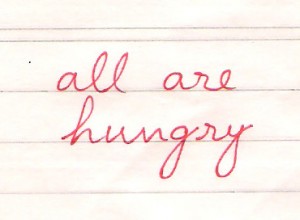 all are
hungry